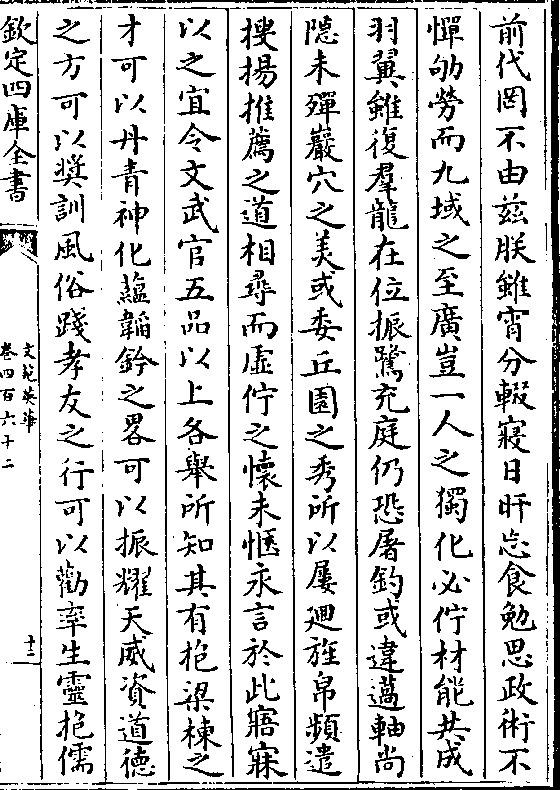 前代罔不由兹朕雖宵分輟寢日旰忘食勉思政術不
憚劬勞而九域之至廣豈一人之獨化必佇材能共成
羽翼雖復羣龍在位振鷺充庭仍恐屠釣或違薖軸尚
隠未殫巖穴之美或委丘園之秀所以屢廻旌帛頻遣
搜揚推薦之道相尋而虚佇之懷未愜永言於此寤寐
以之宜令文武官五品以上各舉所知其有抱梁棟之
才可以丹青神化蘊韜鈐之畧可以振耀天威資道德
之方可以奬訓風俗踐孝友之行可以勸率生靈抱儒
欽定四庫全書
文苑英華
卷四百六十二
十三